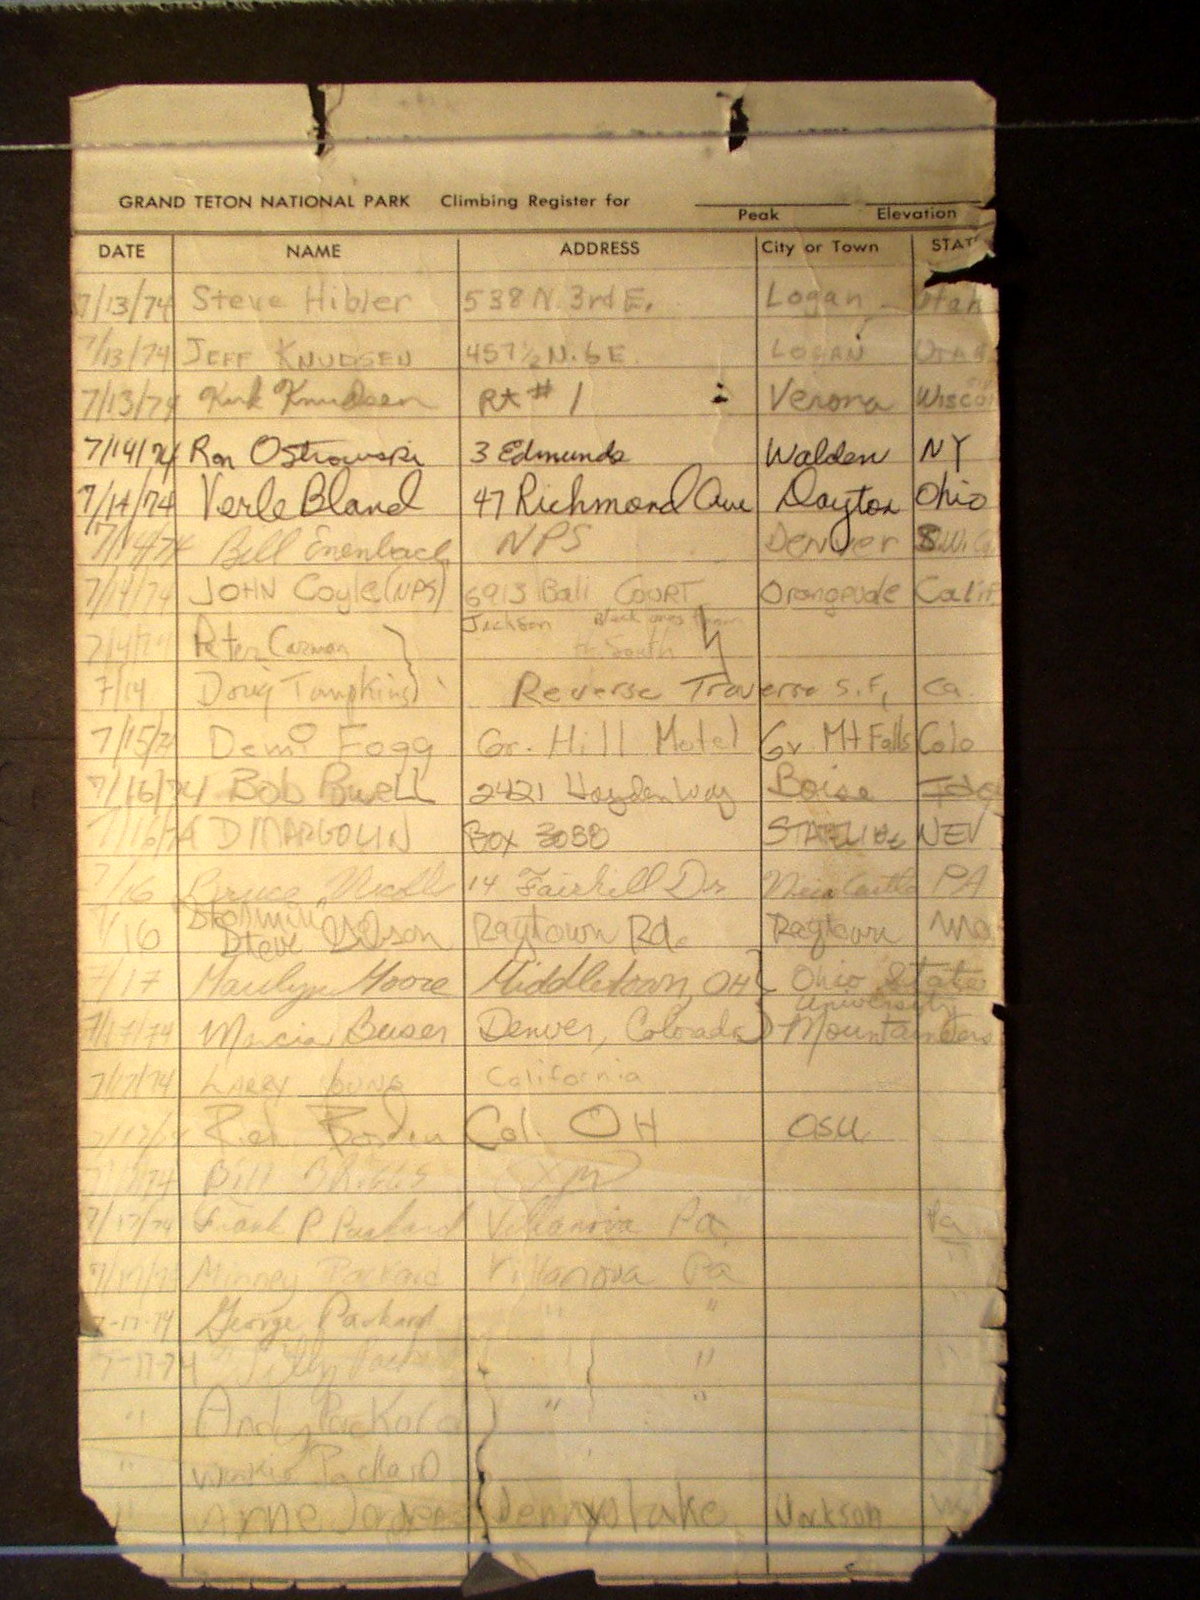 GRAND TETON NATIONAL PARK Climbing Register for
Peak Elevation
DATE NAME ADDRESS City or Town STAT
7/13/74 Steve Hibler 538 N. 3rd E. Logan Utah
7/13/74 JEFF KNUDSEN 457 1/2 N. 6 E LOGAN UTAH
7/13/74 Kirk Knudsen Rt # 1 Verona Wiscon
7/14/74 Ron Ostrowski 3 Edmunds Walden NY
7/14/74 Verle Bland 47 Richmond Ave Dayton Ohio
7/14/74 Bill NPS Denver
7/14/74 JOHN Coyle (NPS) 6913 Bali COURT Orangevale Calif
Jackson
7/14/74 Peter Carman South
7/14 Doug Tompkins Reverse Traverse S.F, Ca.
7/15/74 Demi Fogg Gr. Hill Motel Gr. Mt Falls Colo
7/16/74 Bob 2421 Hayden Way Boise
7/16/74 D MARGOLIN BOX 3088 STATELINE NEV
7/16 Bruce 14 Fairhill Dr New Castle PA
7/16 Steve Gibson Raytown Rd. Raytown Mo.
7/17 Marilyn Moore Middletown, OH } Ohio State
University
7/17/74 Marcia Buser Denver, Colorado } Mountaineers
7/17/74 LARRY YOUNG California
Borden Col. OH OSU
Bill
7/17/74 Frank P Packard Villanova Pa Pa
7/17/74 Packard Villanova Pa "
7-17-74 George Packard " " "
7-17-74 " "
" Andy Packard " "
" Packard
" Arne Jenny Lake Jackson